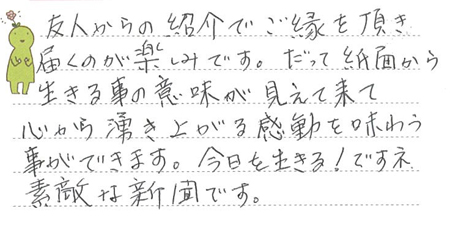 友人からの紹介でご縁を頂き
届くのが楽しみです。だって紙面から
生きる事の意味が見えて来て
心から湧き上がる感動を味わう
事ができます。今日を生きる!ですネ
素敵な新聞です。